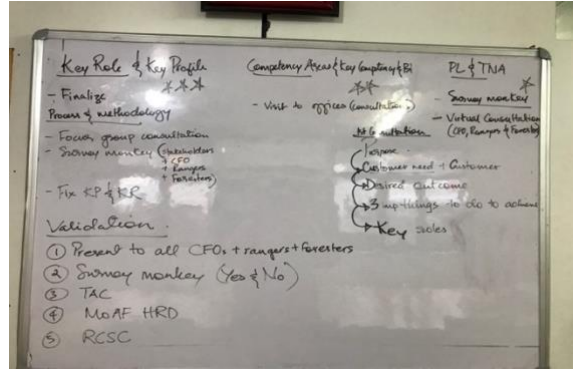 Key Role & Key Profile
***
- Finalize
Process & methodology
- Focus group consultation
- Survey monkey (stakeholders
+ CFO
+ Rangers
+ Foresters)
- Fix KP & KR
Validation.
① Present to all CFOs + rangers + foresters
② Survey monkey (Yes & No)
③ TAC
④ MoAF HRD
⑤ RCSC
Competency Areas & Key Competency & BI
**
- Visit to offices (Consultation)
PL & TNA
*
- Survey monkey
- Virtual Consultation
(CFO, Rangers & Foresters)
Consultation
Purpose
Customer need + Customer
Desired outcome
3 imp things to do to achieve
Key roles